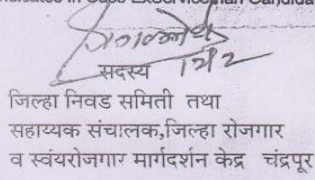 सदस्य 12/2
जिल्हा निवड समिती तथा
सहाय्यक संचालक,जिल्हा रोजगार
व स्वंयरोजगार मार्गदर्शन केंद्र चंद्रपूर